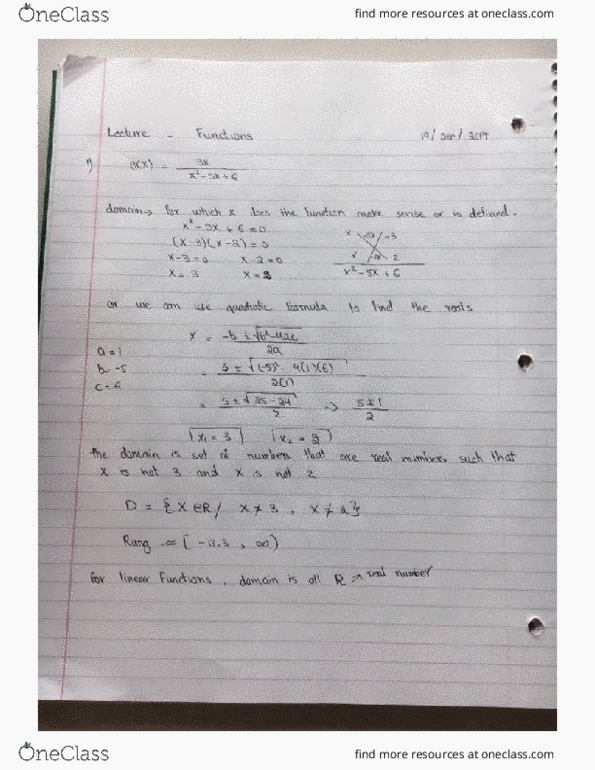 OneClass
find more resources at oneclass.com
Lecture - Functions
19/ Sep / 2017
1) g(x) = 3x / x² - 5x + 6
domain → for which x does the function make sense or is defined.
x² - 5x + 6 = 0
(x - 3)(x - 2) = 0
x - 3 = 0 x - 2 = 0
x = 3 x = 2
x -3
x 2
x² - 5x + 6
or we can use quadratic formula to find the roots
x = -b ± √b² - 4ac / 2a
a = 1
b = -5
= 5 ± √(-5)² 4(1)(6) / 2(1)
= 5 ± √25 - 24 / 2 => 5 ± 1 / 2
x₁ = 3 x₂ = 2
the domain is set of numbers that are real numbers such that
x is not 3 and x is not 2
D = { x ∈ R / x ≠ 3 , x ≠ 2 }
Rang = [ -3.3 , ∞)
for linear Functions , domain is all R → real number
OneClass
find more resources at oneclass.com